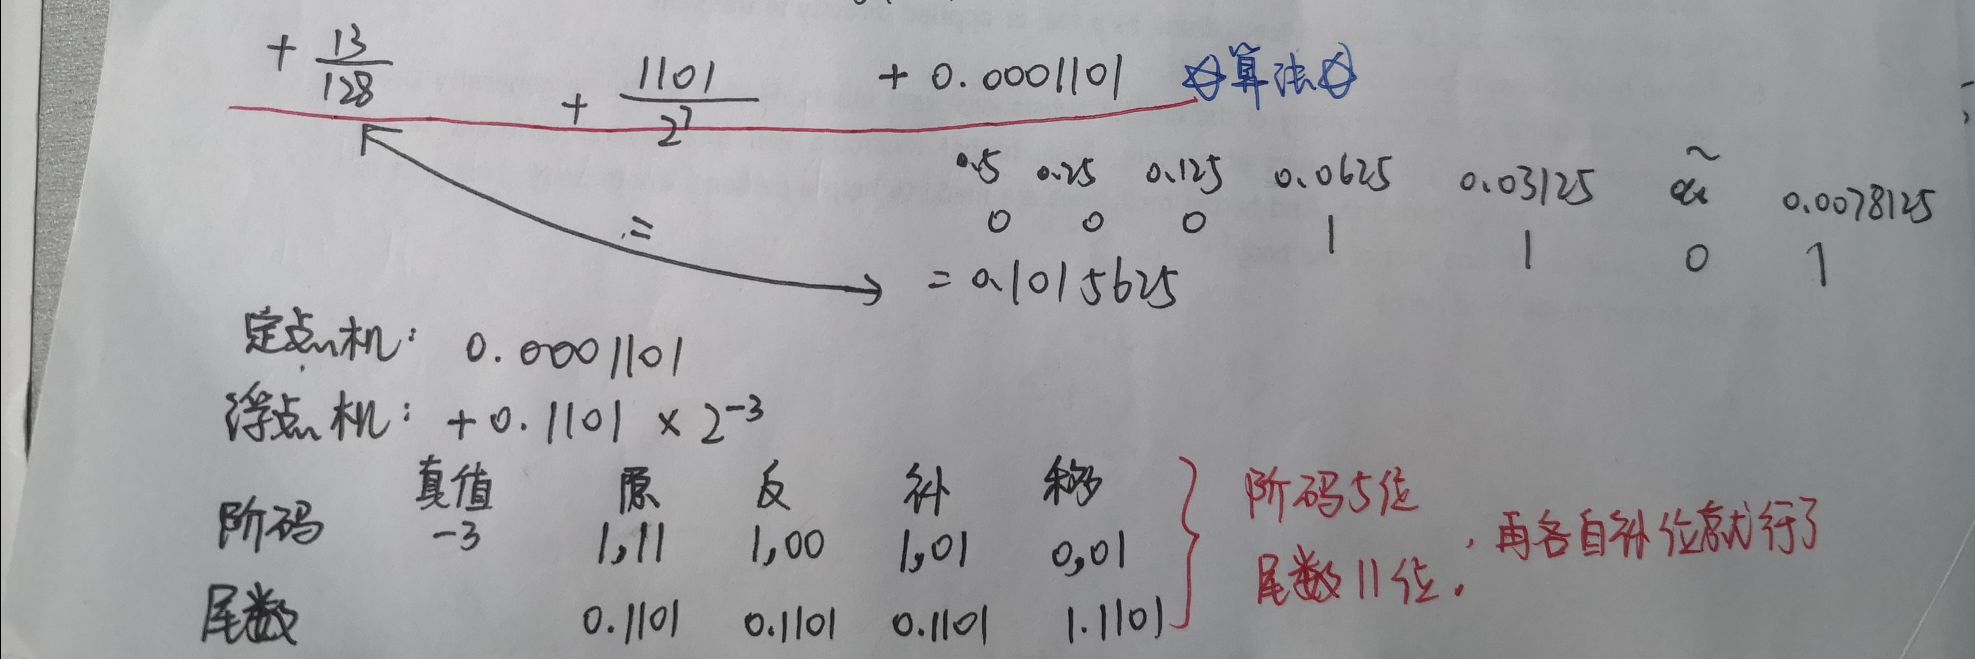 + 13/128 + 1101/2^7 + 0.0001101 ✡算法✡
0.5 0.25 0.125 0.0625 0.03125 ~ 0.0078125
0 0 0 1 1 0 1
= = 0.1015625
定点机: 0.0001101
浮点机: +0.1101 × 2^-3
真值 原 反 补 移
阶码 -3 1,11 1,00 1,01 0,01
尾数 0.1101 0.1101 0.1101 1.1101
阶码5位
尾数11位. , 再各自补位就行了